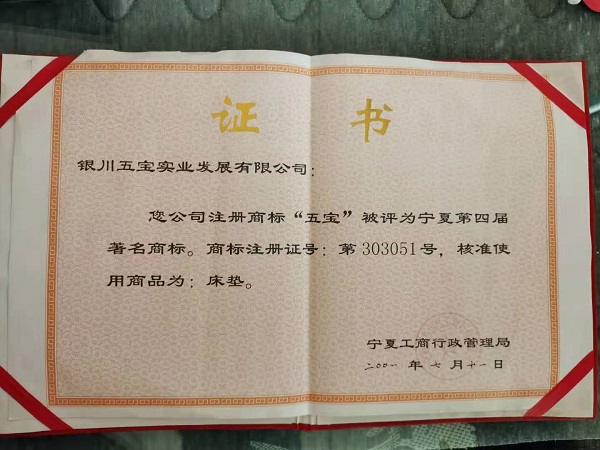 证 书
银川五宝实业发展有限公司：
您公司注册商标“五宝”被评为宁夏第四届
著名商标。商标注册证号：第303051号，核准使
用商品为：床垫。
宁夏工商行政管理局
二00一年七月十一日